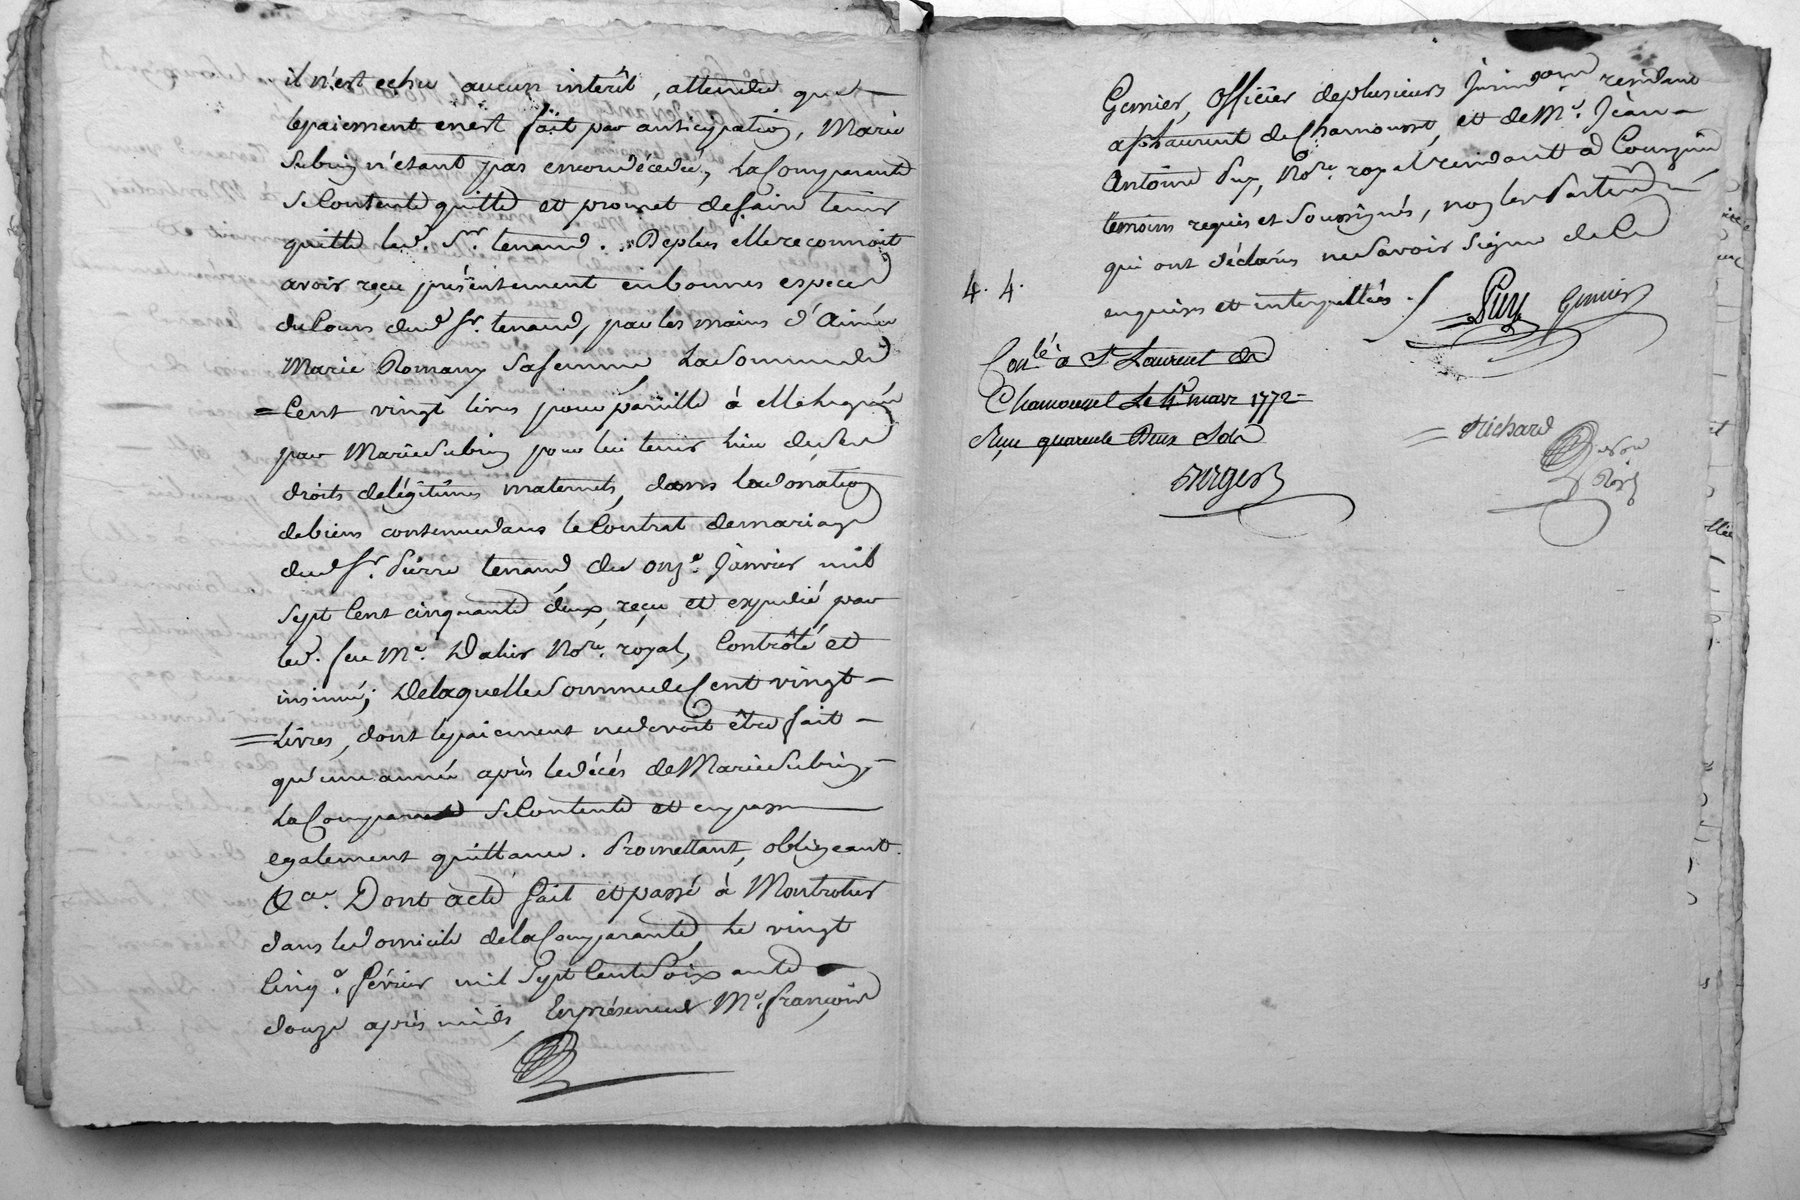 il n'est echu aucun interêt, attendu que
le paiement en est fait par anticipation, Marie
Subrin n'étant pas encore décédée, La Comparante
Se Contente quitte et promet de faire tenir
quitte led. Sr. tenand. De plus elle reconnoit
avoir reçu présentement en bonnes especes
du Cours dud. Sr. tenand, par les mains d'Aimée
Marie Romany Sa femme La Somme de
= Cent vingt livres pour pareille à elle leguée
par Marie Subrin pour lui tenir lieu de Ses
droits de légitimes maternels, dans la donation
de biens contenue dans le Contrat de mariage
dud. Sr. Pierre tenand du onze. Janvier mil
Sept Cent cinquante deux, reçu et expedié par
led. feu Me. Dalier Nore. royal, Contrôlé et
insinué; De laquelle Somme de Cent vingt -
= Livres, dont le paiement ne devoit être fait -
qu'une année après le décés de Marie Subrin, -
La Comparante Se Contente et en passe
egalement quittance. Promettant, obligeant
&a. Dont acte fait et passé à Montrotier
dans le domicile de la Comparante, Le vingt
Cinq e. février mil Sept Cent Soixante
douze après midi, En présence de Me. françois
Genier, Officier de plusieurs Jurisdons. residant
a St. Laurent de Chamousset, et de Me. Jean -
Antoine Puy, Nore. royal residant a Courzieu
temoins requis et Soussignés, non les Parties
qui ont déclarés ne Savoir Signer de Ce
enquises et interpellées ./
Puy Genier
4. 4.
Conlé à St Laurent de
Chamousset Le 4e mars 1772 =
Reçu quarente Deux Sols
= Richard